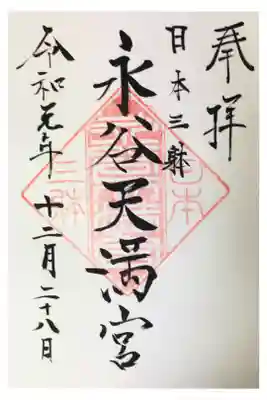 奉拝
日本三躰
永谷天満宮
令和元年十二月二十八日
日本
三躰